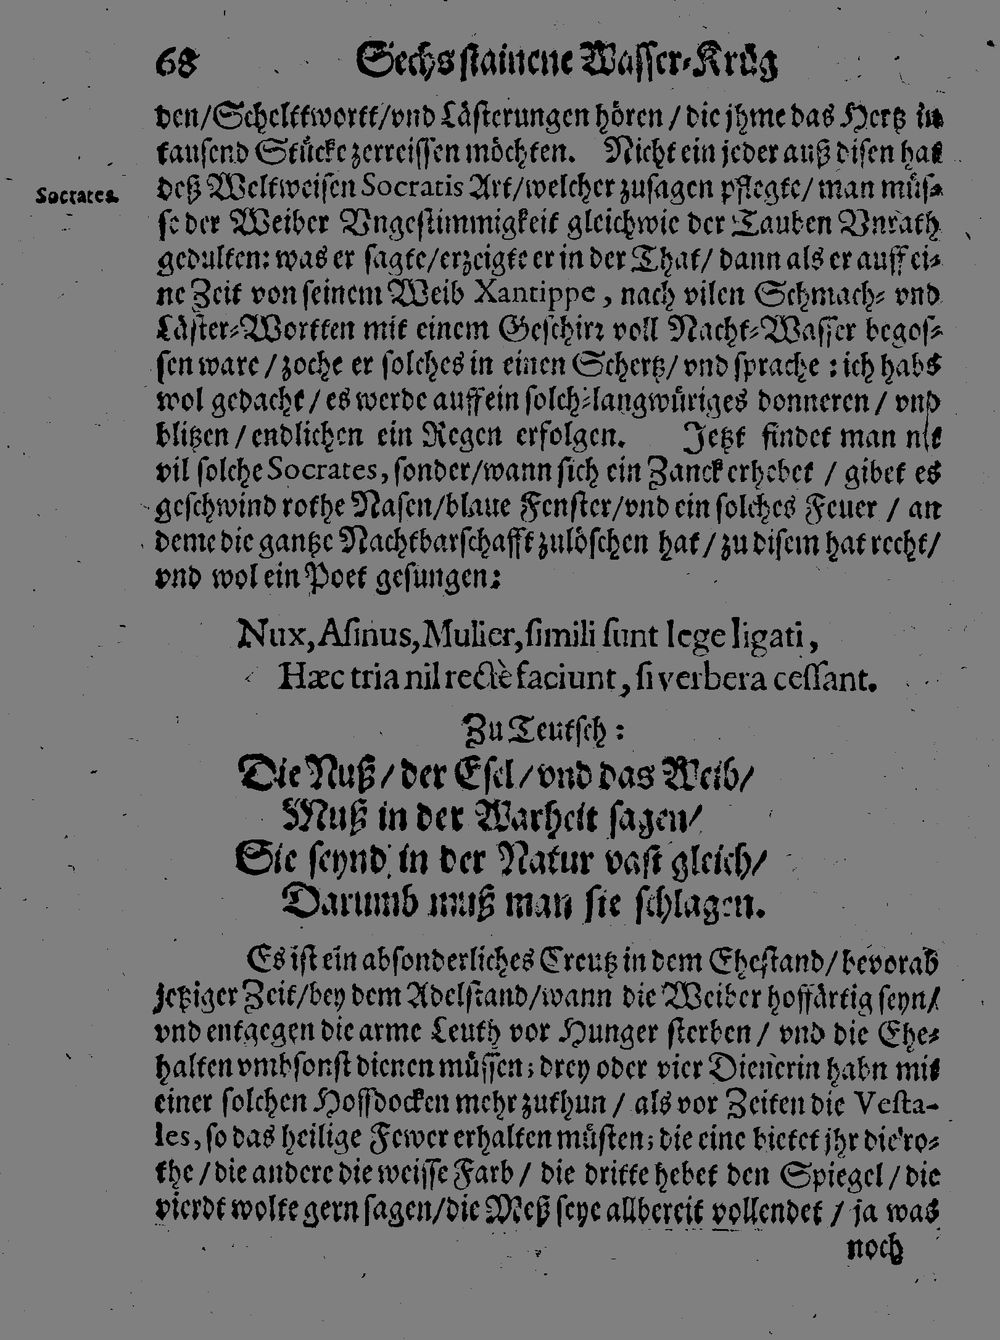 68 Sechs stainene Wasser-Krüg
den/Scheltwortt/vnd Lästerungen hören / die jhme das Hertz in
tausend Stücke zerreissen möchten. Nicht ein jeder auß disen hat
Socrates.
deß Weltweisen Socratis Art/welcher zusagen pflegte/ man müs-
se der Weiber Vngestimmigkeit gleichwie der Tauben Vnrath
gedulten: was er sagte/erzeigte er in der That/ dann als er auff ei-
ne Zeit von seinem Weib Xantippe, nach vilen Schmach- vnd
Läster-Wortten mit einem Geschirr voll Nacht-Wasser begos-
sen ware / zoche er solches in einen Schertz/ vnd sprache : ich habs
wol gedacht / es werde auff ein solch-langwüriges donneren / vnd
blitzen / endlichen ein Regen erfolgen. Jetzt findet man nit
vil solche Socrates, sonder/wann sich ein Zanck erhebet / gibet es
geschwind rothe Nasen/blaue Fenster/vnd ein solches Feuer / an
deme die gantze Nachtbarschafft zulöschen hat / zu disem hat recht/
vnd wol ein Poet gesungen:
Nux, Asinus, Mulier, simili sunt lege ligati,
Hæc tria nil rectè faciunt, si verbera cessant.
Zu Teutsch :
Die Nuß / der Esel / vnd das Weib/
Muß in der Warheit sagen/
Sie seynd in der Natur vast gleich/
Darumb muß man sie schlagen.
Es ist ein absonderliches Creutz in dem Ehestand/ bevorab
jetziger Zeit/bey dem Adelstand/wann die Weiber hoffärtig seyn/
vnd entgegen die arme Leuth vor Hunger sterben / vnd die Ehe-
halten vmbsonst dienen müssen; drey oder vier Dienerin habn mit
einer solchen Hoffdocken mehr zuthun / als vor Zeiten die Vesta-
les, so das heilige Fewer erhalten müsten; die eine bietet jhr die ro-
the / die andere die weisse Farb / die dritte hebet den Spiegel / die
vierdt wolte gern sagen/die Meß seye allbereit vollendet / ja was
noch